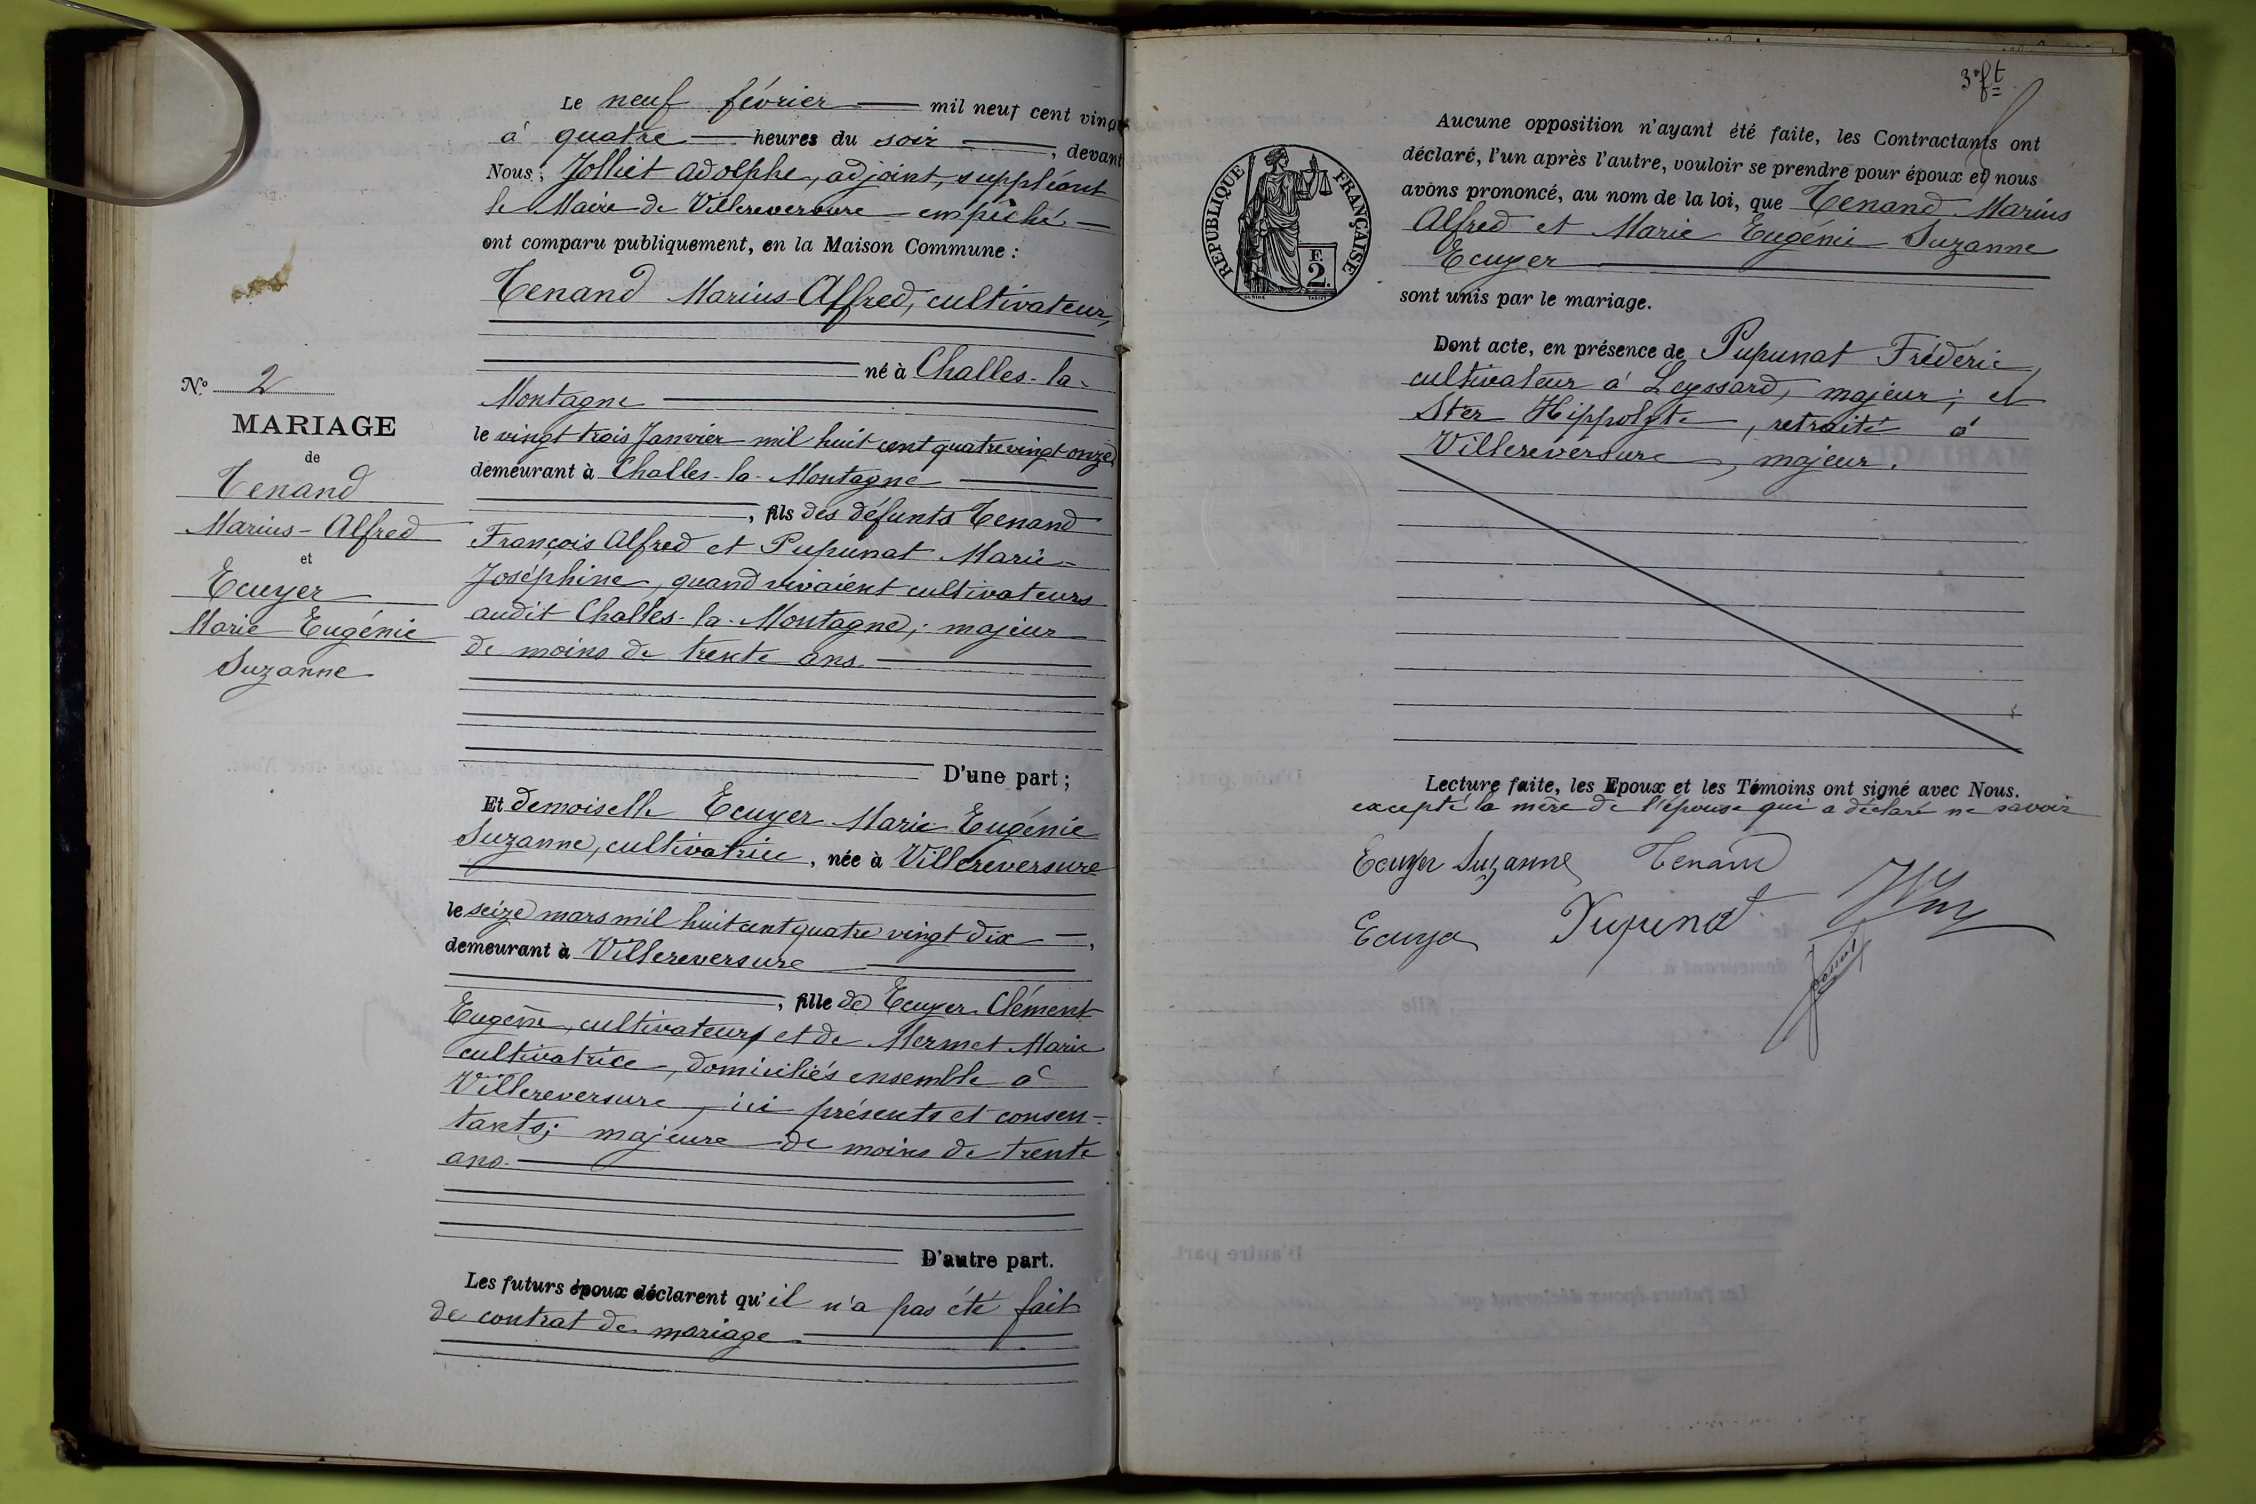 Le neuf février mil neuf cent vingt
à quatre heures du soir, devant
Nous, Jolliet Adolphe, adjoint, suppléant
le Maire de Villereversure empêché
ont comparu publiquement, en la Maison Commune :
Tenand Marius-Alfred, cultivateur,
né à Challes-la-
Montagne
le vingt trois Janvier mil huit cent quatre vingt onze
demeurant à Challes-la-Montagne
, fils des défunts Tenand
François Alfred et Pupunat Marie-
Joséphine, quand vivaient cultivateurs
audit Challes-la-Montagne; majeur
de moins de trente ans.
D'une part ;
Et demoiselle Ecuyer Marie Eugénie
Suzanne, cultivatrice, née à Villereversure
le seize mars mil huit cent quatre vingt dix,
demeurant à Villereversure
, fille de Ecuyer Clément
Eugène, cultivateur, et de Mermet Marie
cultivatrice, domiciliés ensemble à
Villereversure, ici présents et consen-
tants; majeure de moins de trente
ans.
D'autre part.
Les futurs époux déclarent qu'il n'a pas été fait
de contrat de mariage
N° 2
MARIAGE
de
Tenand
Marius-Alfred
et
Ecuyer
Marie Eugénie
Suzanne
3e ft
REPUBLIQUE FRANÇAISE
F.
2.
Aucune opposition n'ayant été faite, les Contractants ont
déclaré, l'un après l'autre, vouloir se prendre pour époux et nous
avons prononcé, au nom de la loi, que Tenand Marius
Alfred et Marie Eugénie Suzanne
Ecuyer
sont unis par le mariage.
Dont acte, en présence de Pupunat Frédéric,
cultivateur à Leyssard, majeur; et
Ster Hippolyte, retraité à
Villereversure, majeur.
Lecture faite, les Epoux et les Témoins ont signé avec Nous.
excepté la mère de l'épouse qui a déclaré ne savoir
Ecuyer Suzanne Tenand
Ecuyer Pupunat